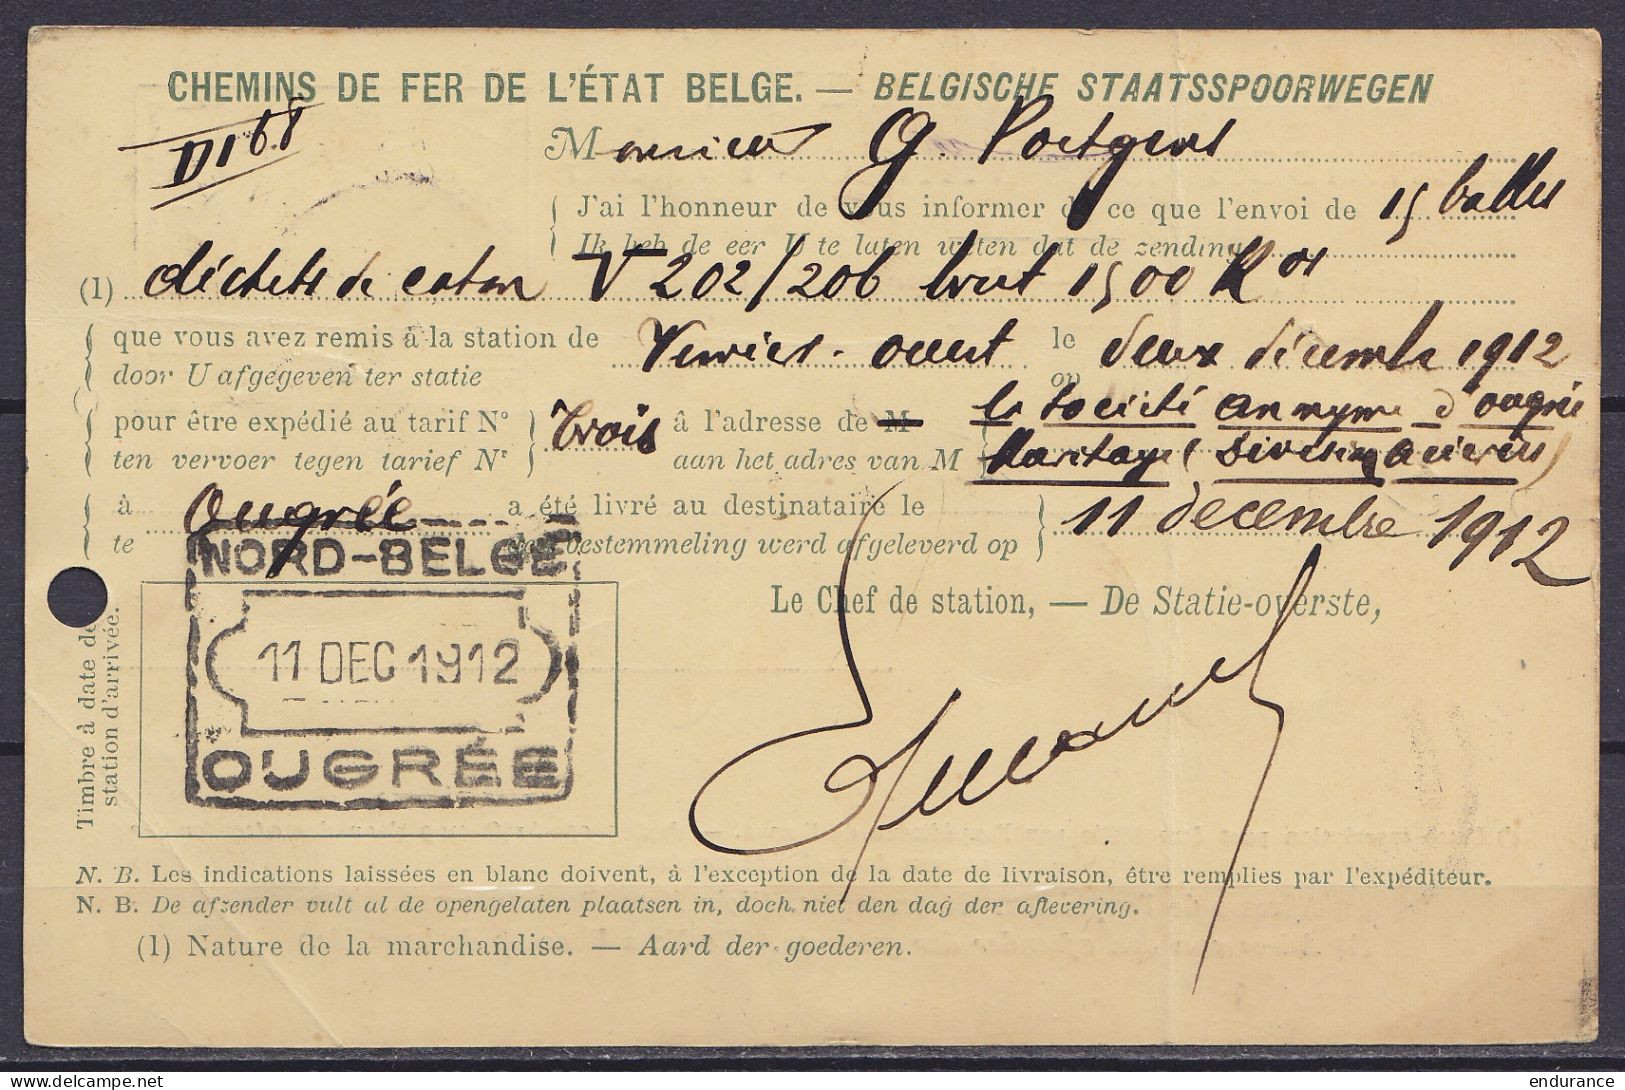 CHEMINS DE FER DE L'ÉTAT BELGE. — BELGISCHE STAATSSPOORWEGEN
Monsieur G. Poetgens
J'ai l'honneur de vous informer de ce que l'envoi de 15 balles
Ik heb de eer U te laten weten dat de zending
(1) déchets de coton V 202/206 brut 1500 Kos
que vous avez remis à la station de Verviers-ouest le deux décembre 1912
door U afgegeven ter statie op
pour être expédié au tarif N° trois à l'adresse de M la société anonyme d'ougrée
ten vervoer tegen tarief Nr aan het adres van M Marihaye (Division aciéries)
à Ougrée a été livré au destinataire le 11 decembre 1912
te bestemmeling werd afgeleverd op
NORD-BELGE
11 DEC 1912
OUGRÉE
Le Chef de station, — De Statie-overste,
Timbre à date de
station d'arrivée.
N. B. Les indications laissées en blanc doivent, à l'exception de la date de livraison, être remplies par l'expéditeur.
N. B. De afzender vult al de opengelaten plaatsen in, doch niet den dag der aflevering.
(1) Nature de la marchandise. — Aard der goederen.
delcampe.net
endurance